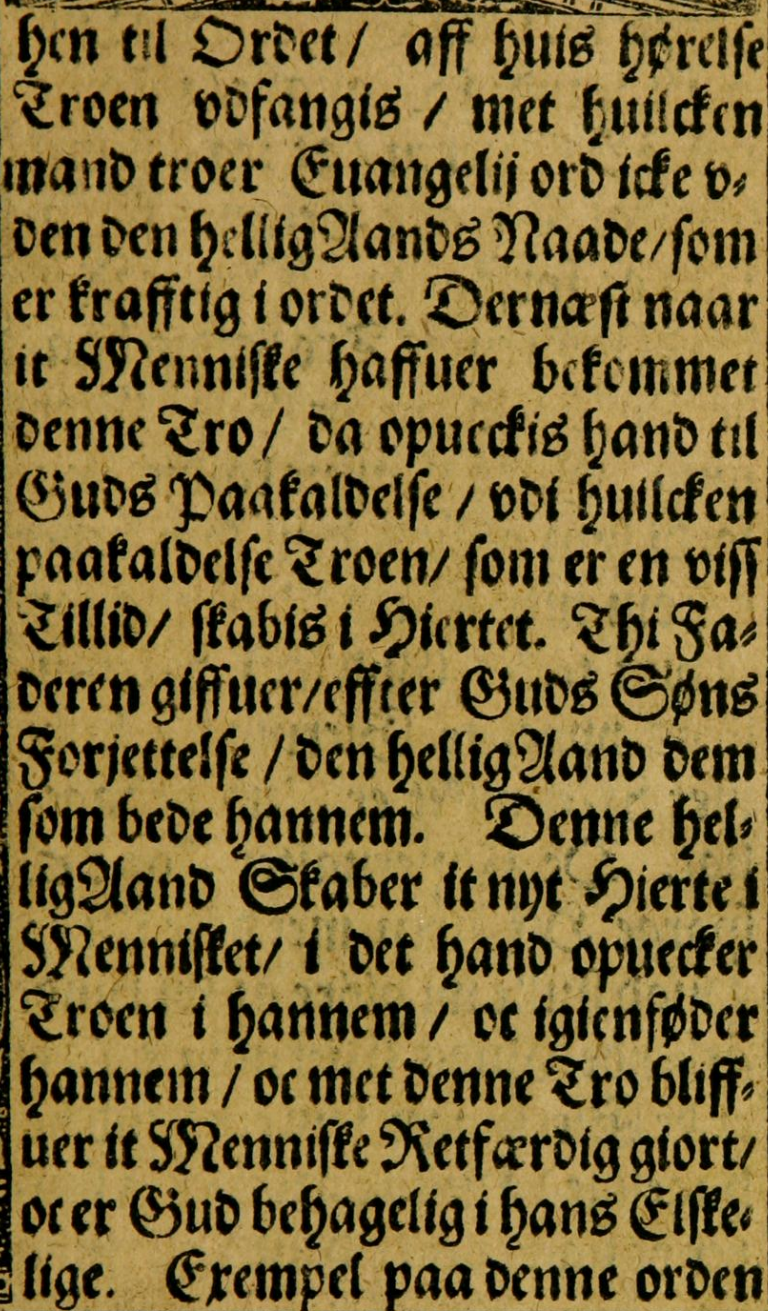 hen til Ordet/ aff huis hørelse
Troen vdfangis / met huilcken
mand troer Euangelij ord icke v⸗
den den helligAands Naade/som
er krafftig i ordet. Dernæst naar
it Menniske haffuer bekommet
denne Tro/ da opueckis hand til
Guds Paakaldelse / vdi huilcken
paakaldelse Troen/ som er en viss
Tillid/ skabis i Hiertet. Thi Fa⸗
deren giffuer/effter Guds Søns
Forjettelse / den helligAand dem
som bede hannem. Denne hel⸗
ligAand Skaber it nyt Hierte i
Mennisket/ i det hand opuecker
Troen i hannem / oc igienføder
hannem / oc met denne Tro bliff⸗
uer it Menniske Retfærdig giort/
oc er Gud behagelig i hans Elske⸗
lige. Exempel paa denne orden